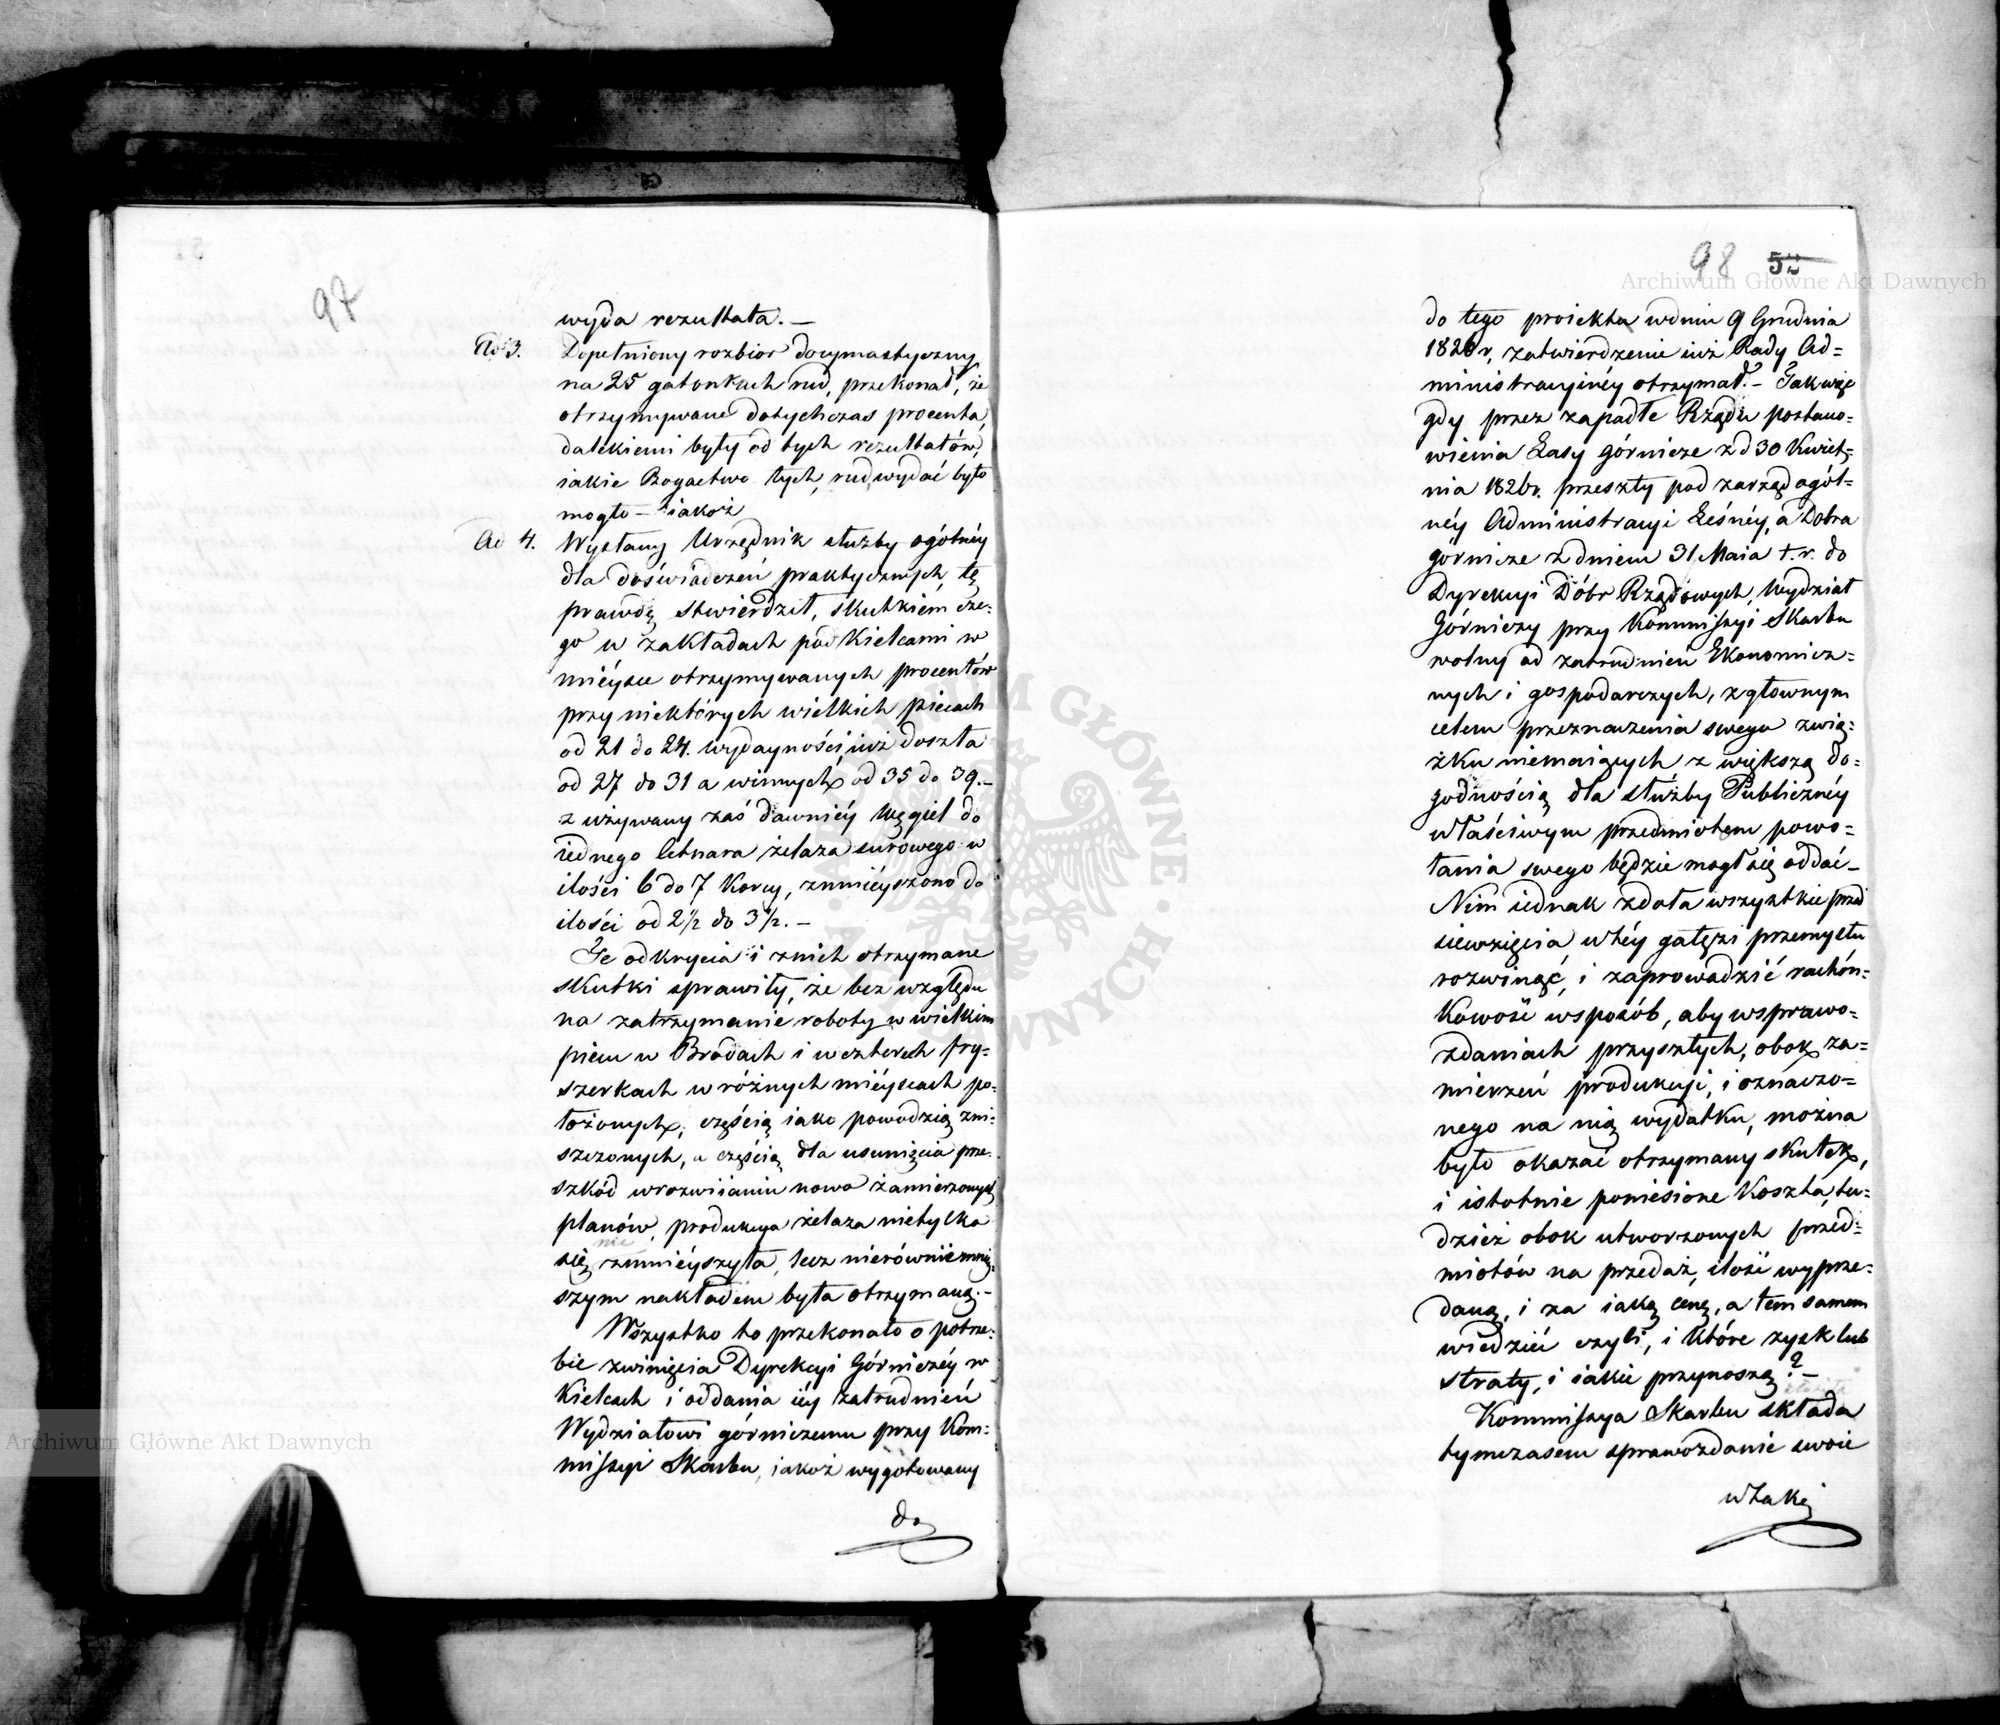 97
wyda rezultata. —
Ad 3. Dopełniony rozbior docymastyczny
na 25 gatonkach rud, przekonał, że
otrzymywane dotychczas procenta,
dalekiemi były od tych rezultatów,
iakie Bogactwo tych, rud wydać było
mogło — iakoż
Ad 4. Wysłany Urzędnik służby ogólnéy
dla doświadczeń praktycznych, tę
prawdę stwierdził, skutkiem cze=
go w zakładach pod Kielcami w
miéysce otrzymywanych procentów
przy niektórych wielkich piecach
od 21 do 24. wydayności, iuż doszła
od 27 do 31 a winnych od 35 do 39. —
z używany zaś dawniéy Węgiel do
iednego Cetnara żelaza surowego w
ilości 6 do 7 Korcy, zmniéyszono do
ilości od 2 1/2 do 3 1/2. —
Te odkrycia i znich otrzymane
skutki sprawiły, że bez względu
na zatrzymanie roboty w wielkim
piecu w Brodach i w czterech fry=
szerkach w różnych miéyscach po=
łożonych, częścią iako powodzią zni=
szczonych, a częścią dla usunięcia prze=
szkód w rozwiianiu nowo zamierzonych
planów, produkcya żelaza nietylko
nie
się zmniéyszyła, lecz nierównie mniéy=
szym nakładem była otrzymaną. —
Wszystko to przekonało o potrze=
bie zwinięcia Dyrekcyi Górniczéy w
Kielcach i oddania iéy zatrudnień
Wydziałowi górniczemu przy Kom=
missyi Skarbu, iakoż wygotowany
do
98 52
do tego proiekta wdniu 9 Grudnia
1826 r, zatwierdzenie iuż Rady Ad=
ministracyinéy otrzymał. — Jak więc
gdy przez zapadłe Rządu postano=
wienia Lasy górnicze z d 30 Kwiet=
nia 1826 r. przeszły pod zarząd ogól=
néy Administracyi Leśnéy, a Dobra
górnicze z dniem 31 Maia t. r. do
Dyrekcyi Dóbr Rządowych, Wydział
Górniczy przy Kommissyi Skarbu
wolny od zatrudnień Ekonomicz=
nych i gospodarczych, z głownym
celem przeznaczenia swego zwią=
zku niemaiących z większą do=
godnością dla służby Publicznéy
właściwym przedmiotem powo=
łania swego będzie mogł się oddać —
Nim iednak zdoła wszystkie przed
siewzięcia w téy gałęzi przemysłu
rozwinąć, i zaprowadzić rachón=
kowość wsposób, aby w sprawo=
zdaniach przyszłych, obok za=
mierzeń produkcyi, i oznaczo=
nego na nią wydatku, można
było okazać otrzymany skutek,
i istotnie poniesione Koszta, tu=
dzież obok utworzonych przed=
miotów na przedaż, ilość wyprze=
daną, i za iaką cenę, a tem samem
wiedzieć czyli, i które zysk lub
straty, i iakie przynoszą? —
Kommissya Skarbu składa
tymczasem sprawozdanie swoie
w takiéy
Archiwum Główne Akt Dawnych
Archiwum Główne Akt Dawnych
ARCHIWUM GŁÓWNE AKT DAWNYCH